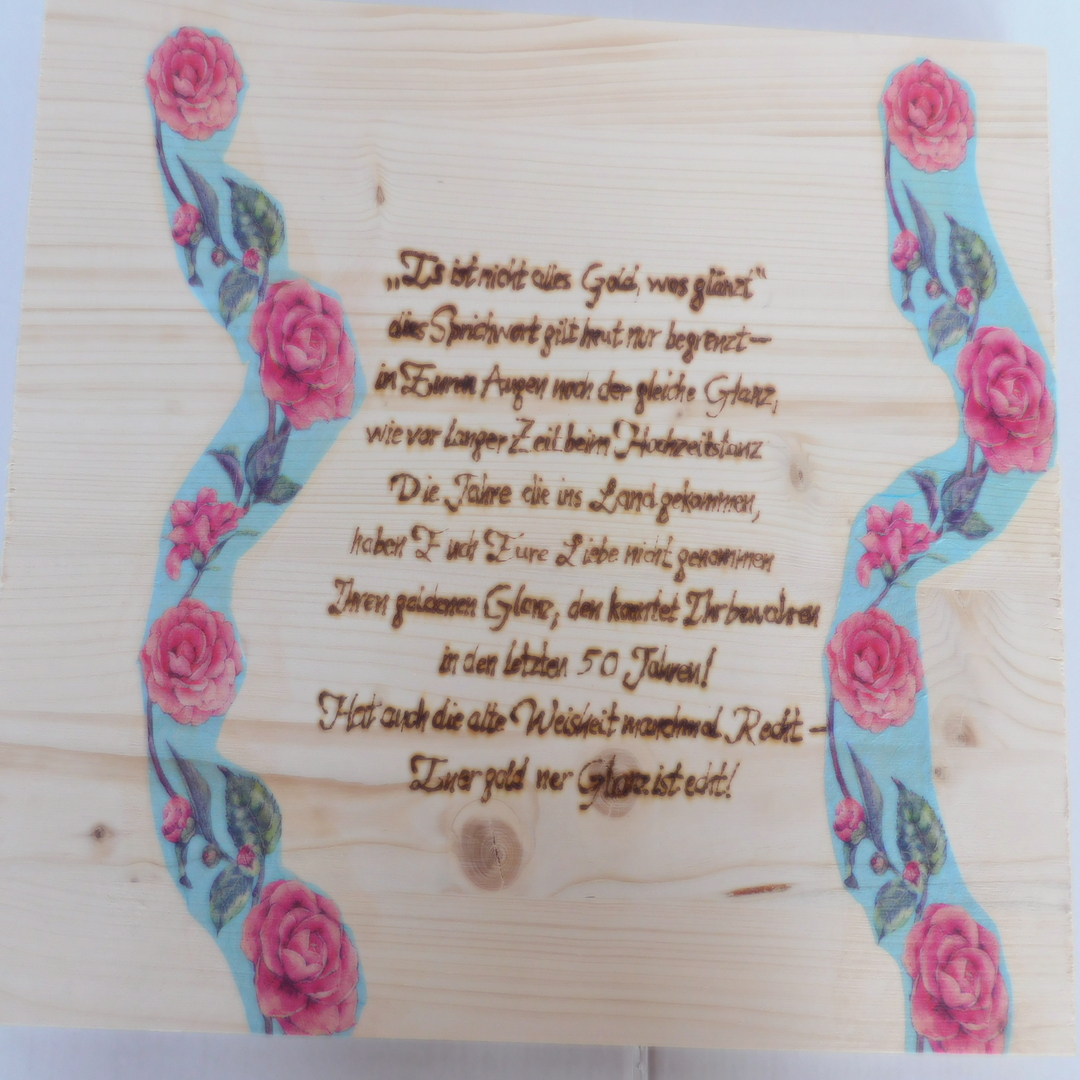 „Es ist nicht alles Gold, was glänzt“
dies Sprichwort gilt heut nur begrenzt—
in Euren Augen noch der gleiche Glanz,
wie vor langer Zeit beim Hochzeitstanz
Die Jahre die ins Land gekommen,
haben Euch Eure Liebe nicht genommen
Ihren goldenen Glanz, den konntet Ihr bewahren
in den letzten 50 Jahren!
Hat auch die alte Weisheit manchmal Recht –
Euer gold'ner Glanz ist echt!